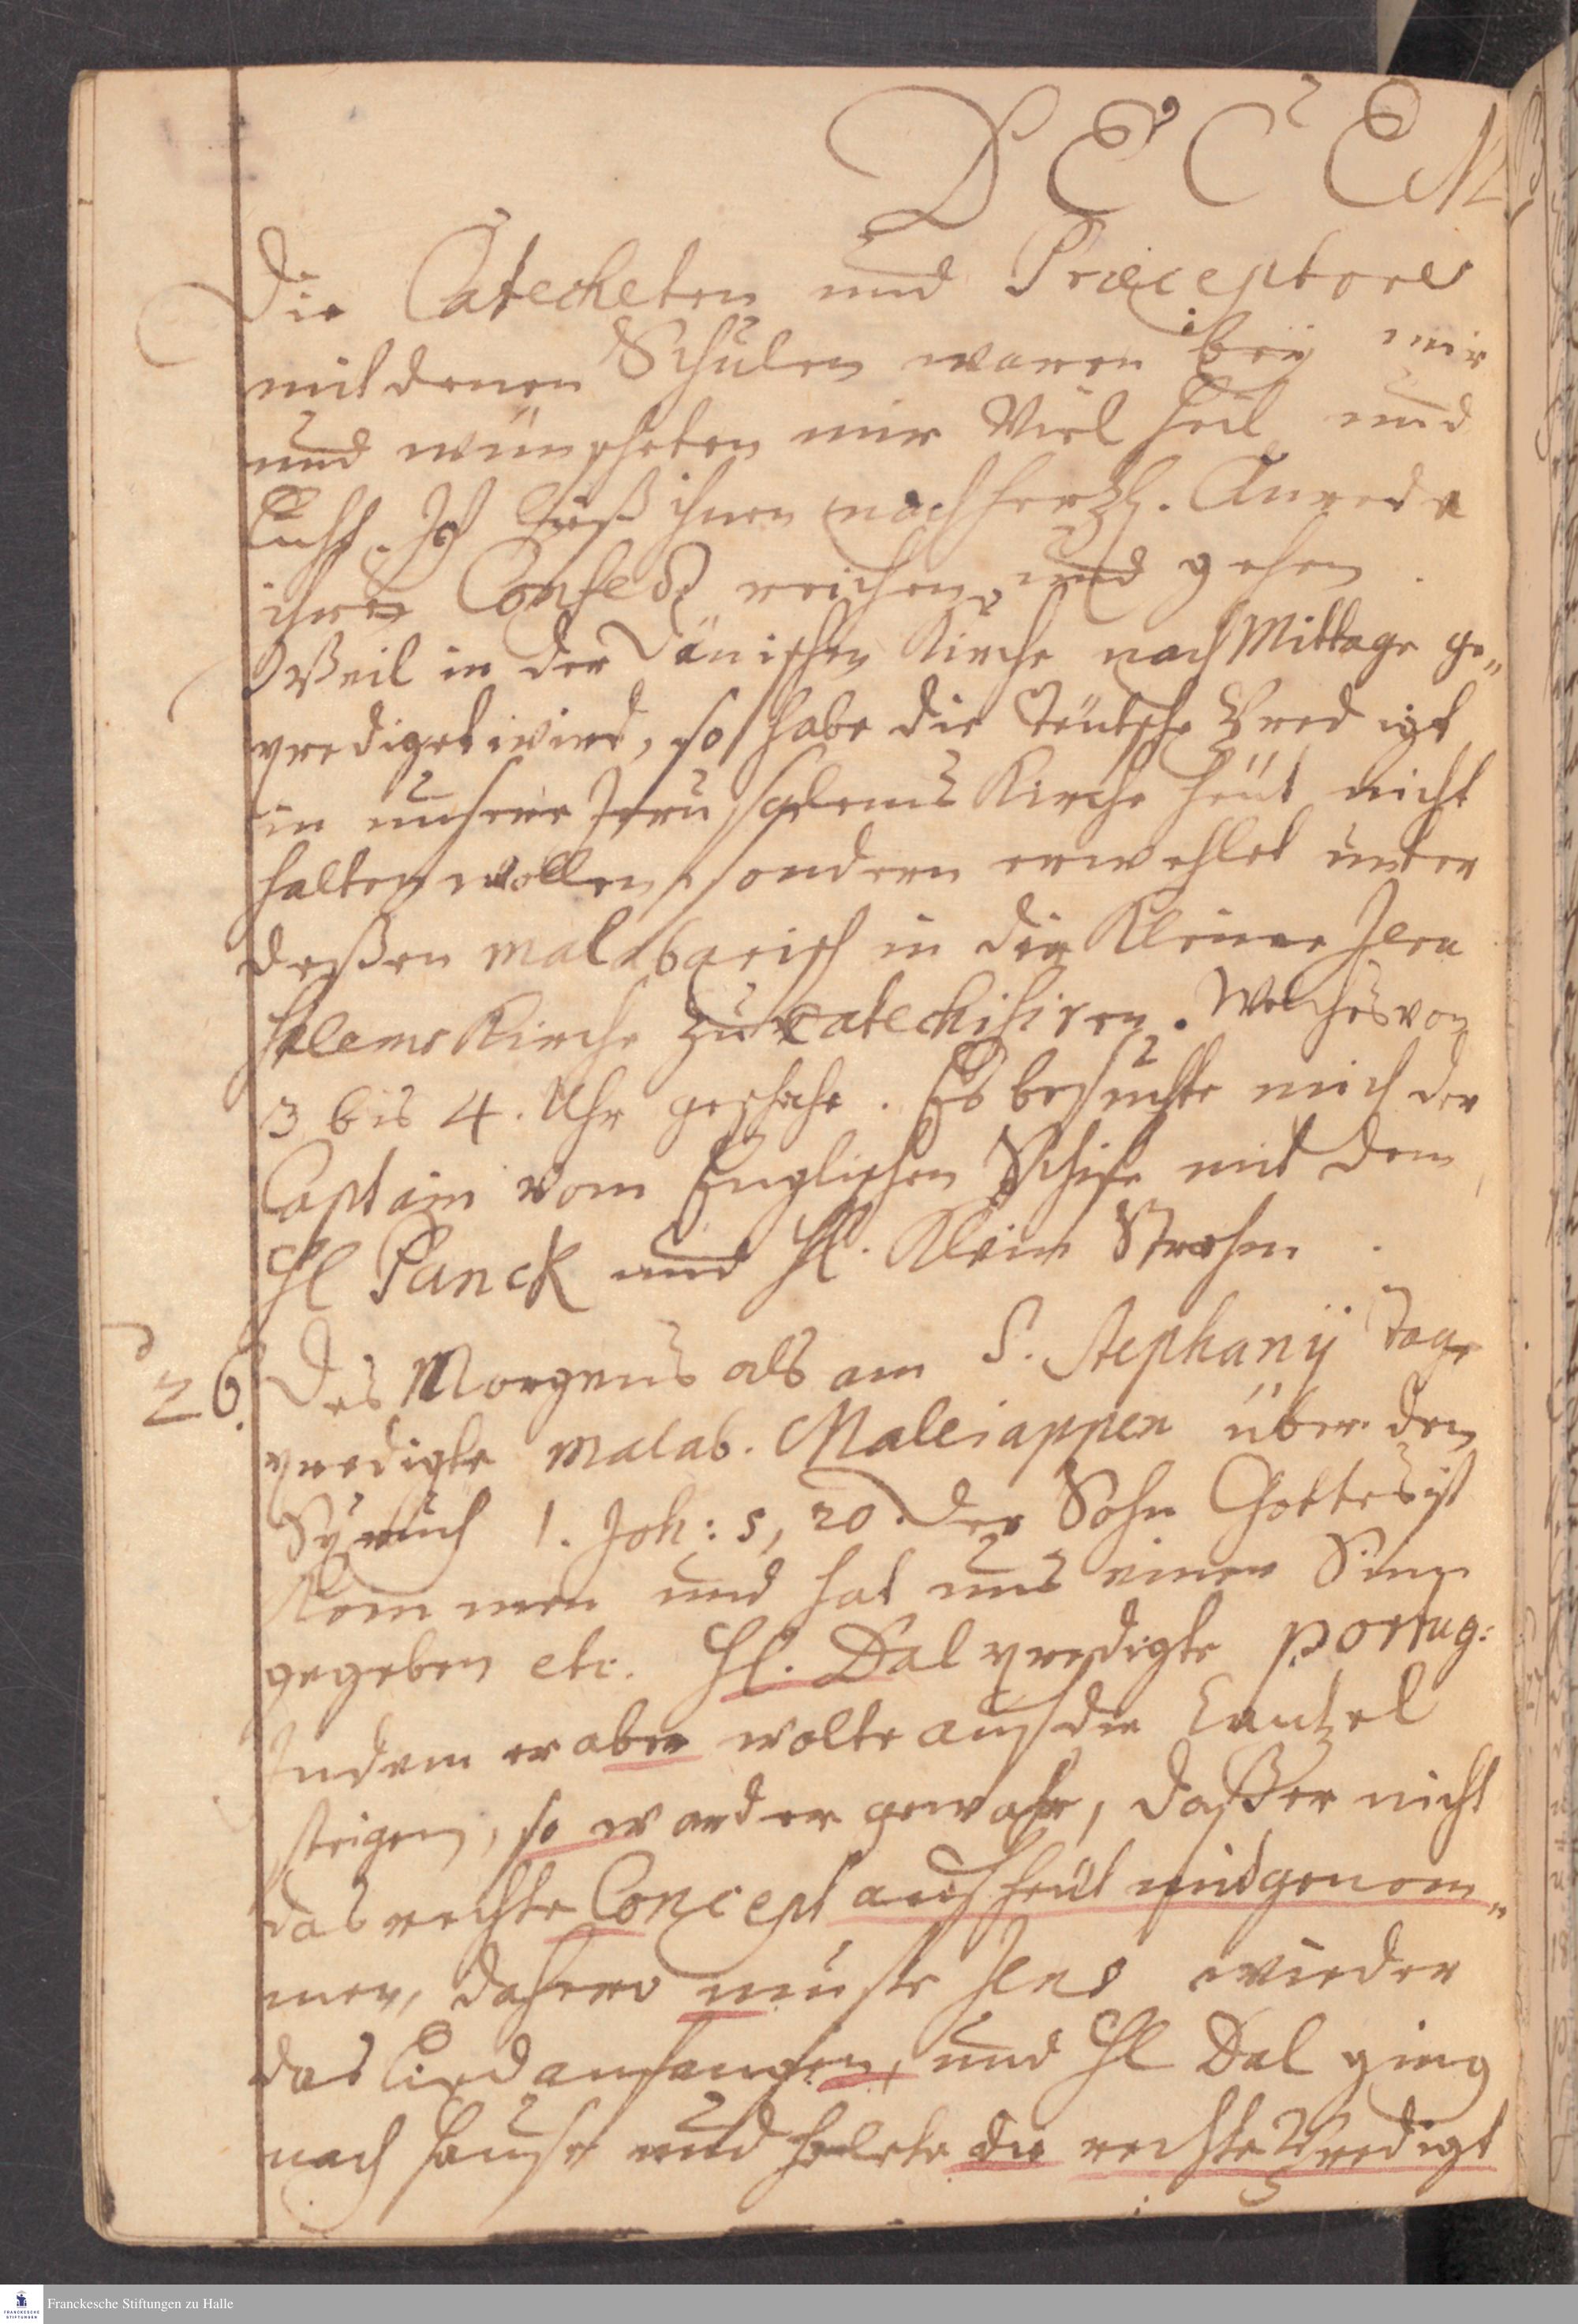 DECEM
Die Catecheten und Præceptores
mit denen Schulen waren beÿ mir
und wünscheten mir Viel heil und
Licht. Ich ließ ihnen nach hertzl. Anrede
ihre Confect reichen, und gehen.
Weil in der Dänischen Kirche nach Mittage ge„
prediget wird, so habe die Teutsche Predigt
in unserer Jerusalems Kirche heut nicht
halten wollen, sondern erwehlet unter
deßen malabarisch in die Kleine Jeru
salems Kirche zu catechisiren. Welches von
3 bis 4. Uhr geschahe. Es besuchte mich der
Captain vom Englischen Schife mit dem
Hl Panck und Hl. Klein Strohm.
26. Des Morgens als am S. Stephanÿ Tage
predigte malab. Maleiappen über den
Spruch 1. Joh: 5, 20. Der Sohn Gottes ist
Kommen und hat uns einen Sinn
gegeben etc. Hl. Dal predigte portug:
Indem er aber wolte auf die Cantzel
steigen, so ward er gewahr, daßer nicht
das rechte Concept auf heut mitgenom„
men, dahero muste Jens wieder
das Lied anfangen, und Hl Dal ging
nach Hause und holete die rechte Predigt
Franckesche Stiftungen zu Halle